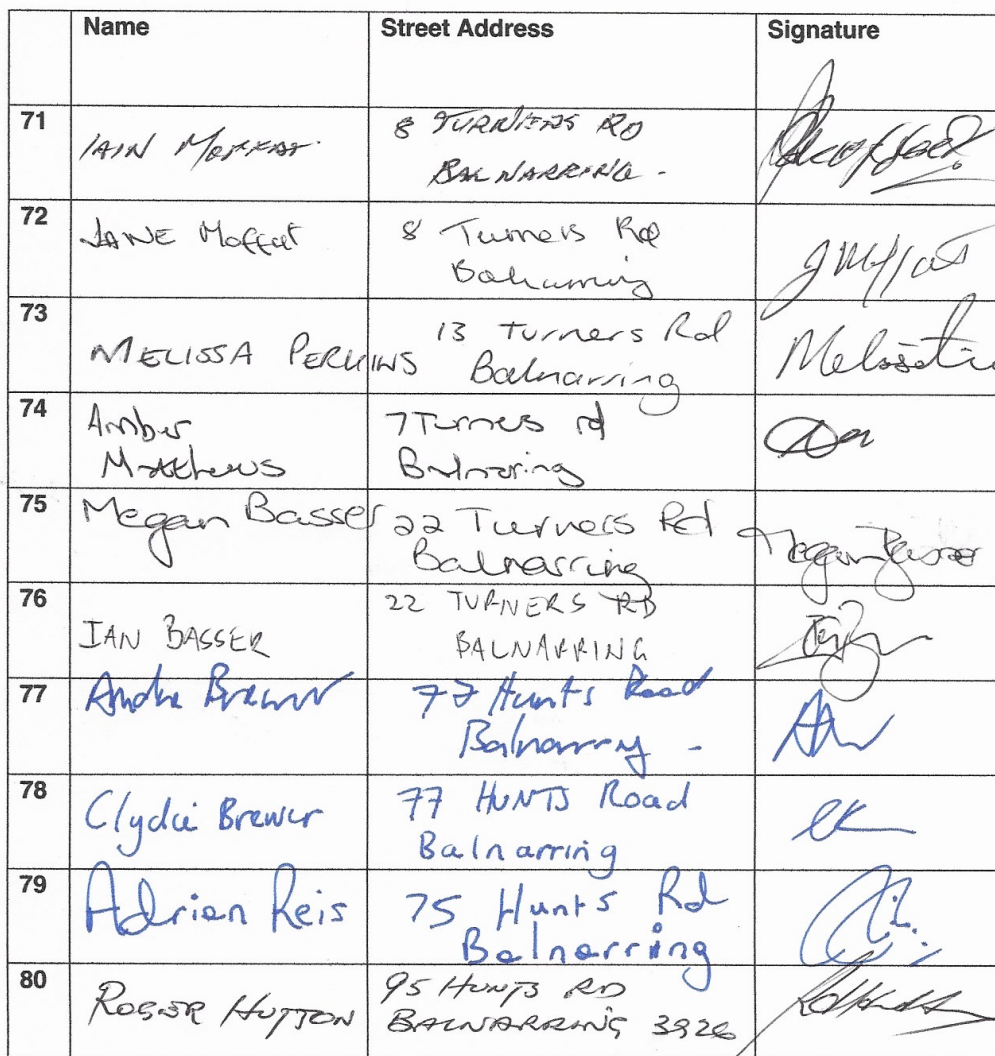 Name Street Address Signature
71 IAIN MOFFAT. 8 TURNERS RD
BALNARRING -
72 JANE Moffat 8 Turners Rd
Balnarring
JMoffat
73 MELISSA PERKINS 13 Turners Rd
Balnarring
74 Amber 7 Turners rd
Matthews Balnarring
75 Megan Basser 22 Turners Rd Megan Basser
Balnarring
76 IAN BASSER 22 TURNERS RD
BALNARRING
77 Brewer 77 Hunts Road
Balnarring -
78 Clydie Brewer 77 HUNTS Road
Balnarring
79 Adrian Reis 75 Hunts Rd
Balnarring
80 ROGER HUTTON 95 HUNTS RD
BALNARRING 3926